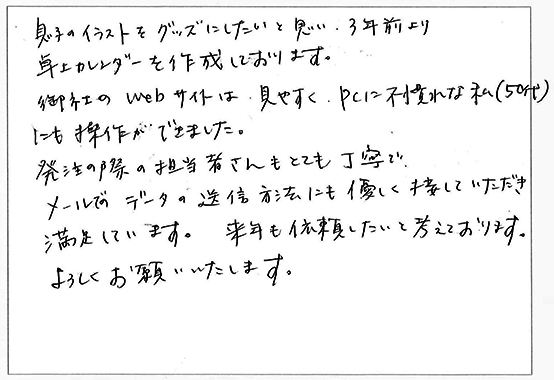 息子のイラストをグッズにしたいと思い、3年前より
卓上カレンダーを作成しております。
御社のwebサイトは、見やすく、PCに不慣れな私(50代)
にも操作ができました。
発注の際の担当者さんもとても丁寧で、
メールでデータの送信方法にも優しく接していただき
満足しています。 来年も依頼したいと考えております。
よろしくお願いいたします。